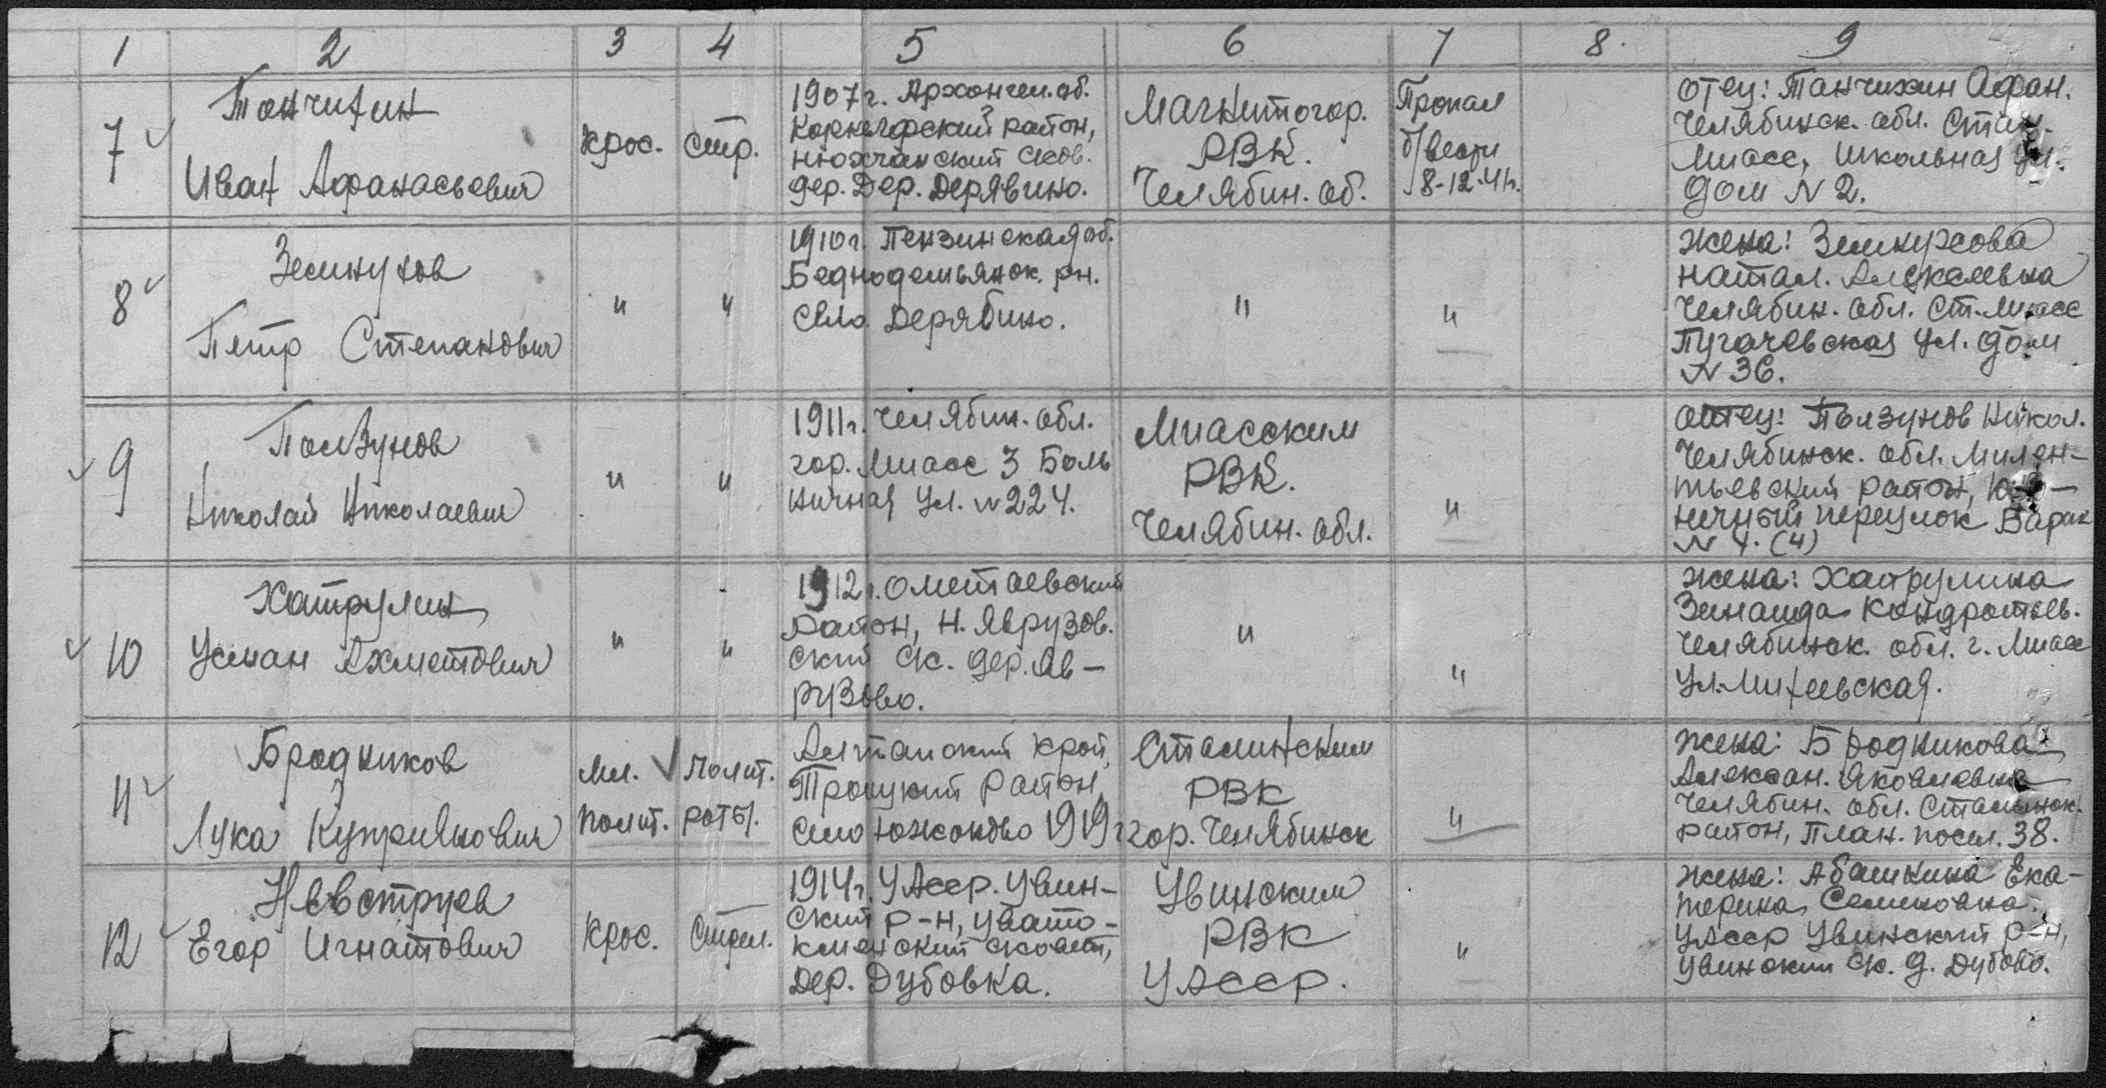 1 2 3 4 5 6 7 8. 9
7
Танчихин
Иван Афанасьевич
крос.
стр.
1907г. Архангел. об.
район,
Нюхчанский сков.
дер. Дер. Дерявино.
Магнитогор.
РВК.
Челябин. об.
Пропал
б/вести
8-12-41г.
отец: Танчихин Афан.
Челябинск. обл. Стан.
Миасс, Школьная ул.
дом N 2.
8
Зминухов
Петр Степанович
"
"
1910г. Пензинская об.
Беднодемьянск. рн.
село Дерябино.
"
"
жена: Зминухова
натал. Алексеевна
Челябин. обл. ст. Миасс
Пугачевская ул. дом
N 36.
9
Ползунов
Николай Николаевич
"
"
1911г. Челябин. обл.
гор. Миасс 3 Боль
ничная ул. N 224.
Миасским
РВК.
Челябин. обл.
"
отец: Ползунов Никол.
Челябинск. обл. Милен-
тьевский район,
нечный переулок Барак
N 4. (4)
10
Хатрулин
Усман Ахметович
"
"
1912г. Ометаевский
район, Н. Яврузов.
ский ск. дер. Яв-
рузово.
"
"
жена: Хатрулина
Зинаида Кондратьев.
Челябинск. обл. г. Миасс
ул. Михеевская.
11
Бродников
Лука Куприянович
Мл.
полит.
Полит.
роты.
Алтайский край,
Троицкий район,
село Южаково 1919г
Сталинским
РВК
гор. Челябинск
"
жена: Бродникова
Алексан. Яковлевна
Челябин. обл. Сталинск.
район, План. посел. 38.
12
Невструев
Егор Игнатович
крос.
Стрел.
1914г. УАсср. Увин-
ский р-н, Увато-
клменский сковет,
дер. Дубовка.
Увинским
РВК
УАССР.
"
жена: Абашкина Ека-
терина Семеновна.
УАсср Увинский р-н,
Увинский ск. д. Дубово.